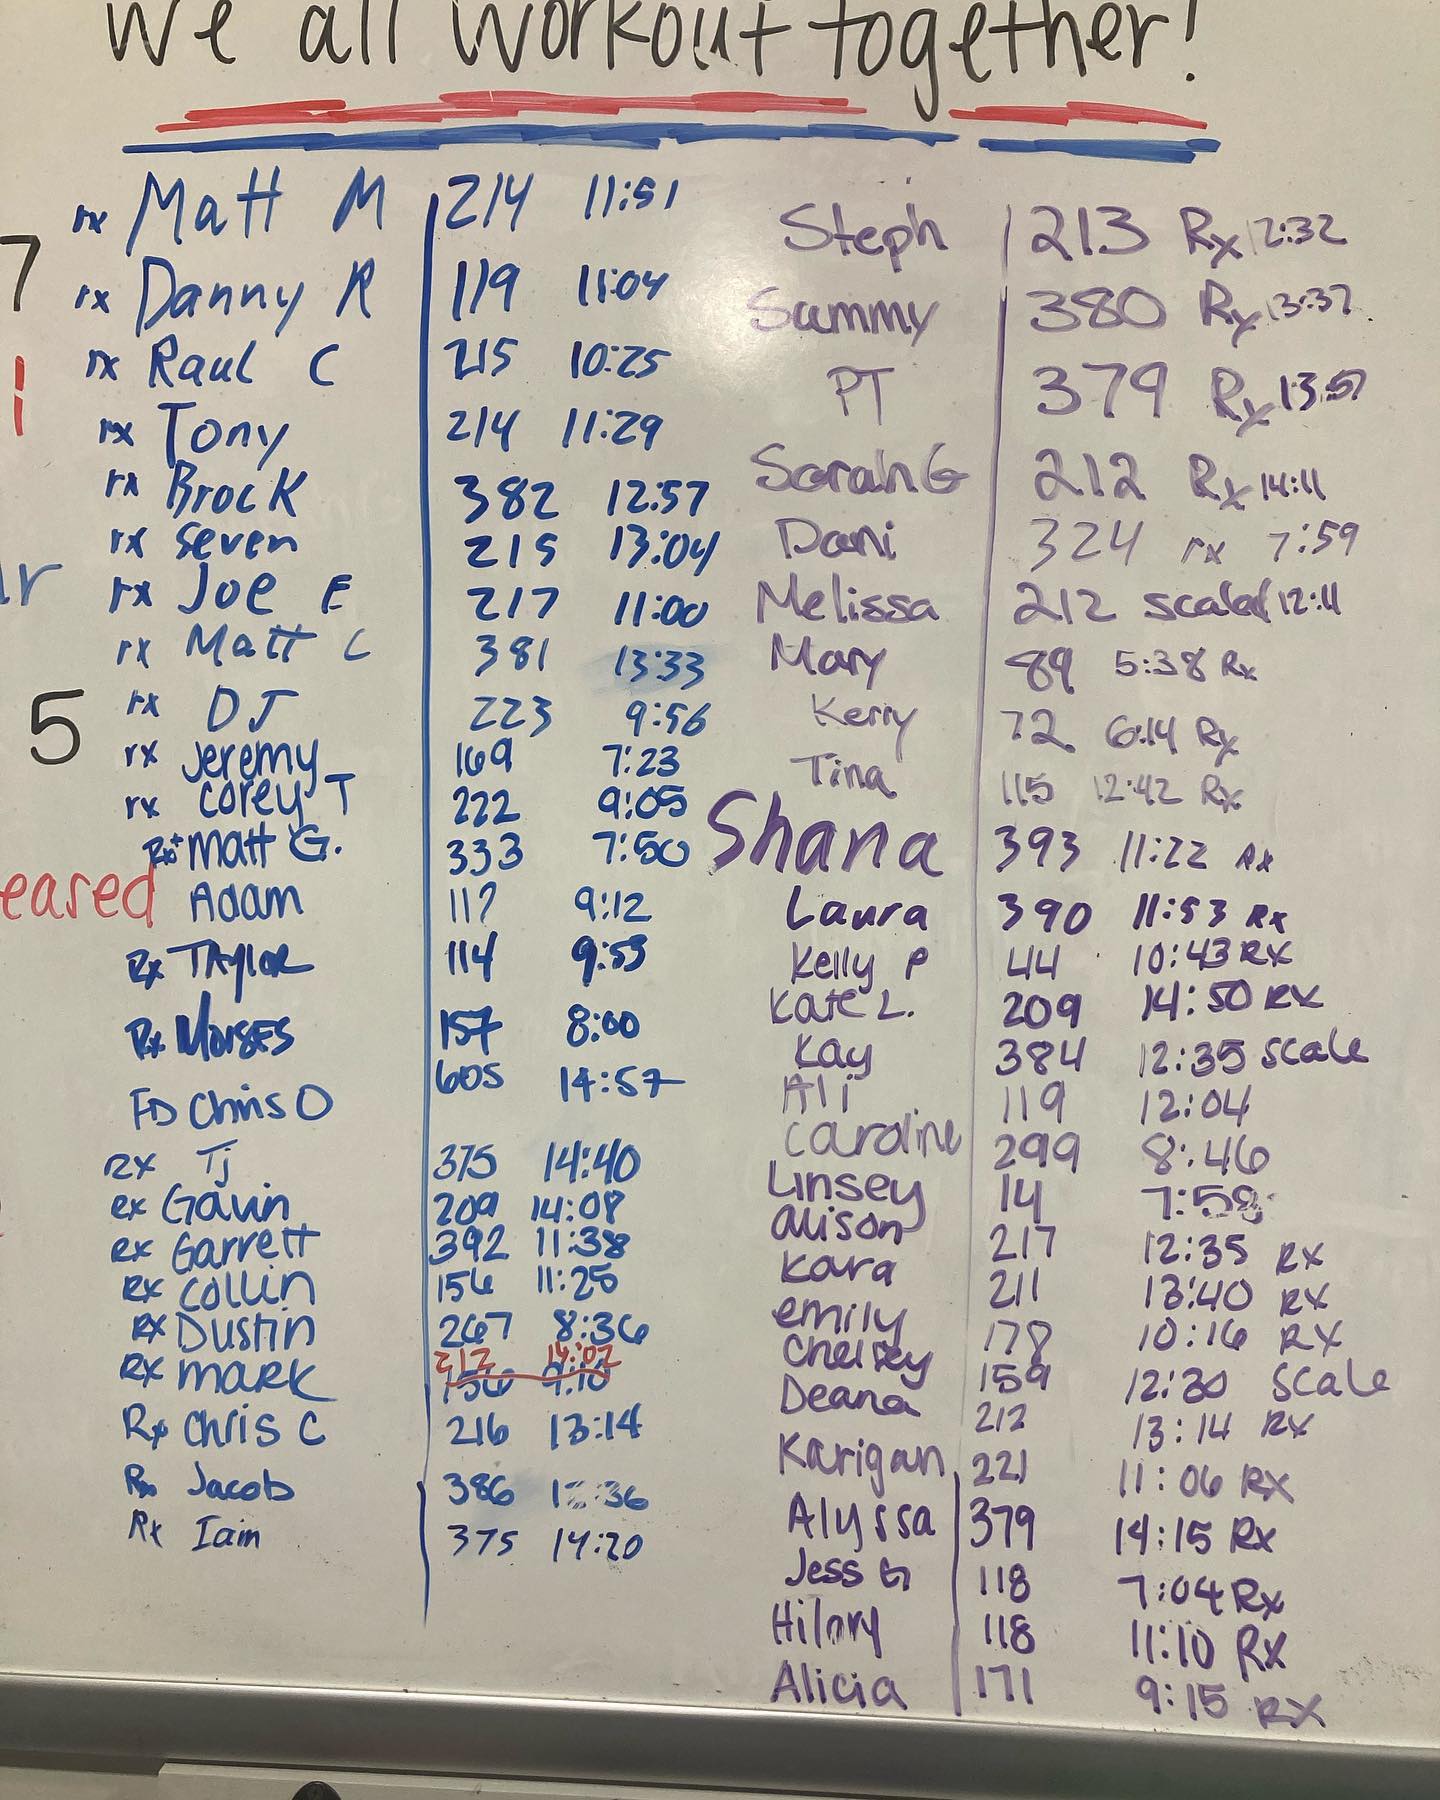 We all workout together!
rx Matt M 214 11:51
7
rx Danny R 119 11:04
rx Raul C 215 10:25
rx Tony 214 11:29
rx Brock 382 12:57
rx seven 215 13:04
rx Joe E 217 11:00
rx Matt C 381 13:33
rx DJ 223 9:56
5
rx Jeremy 169 7:23
rx Corey T 222 9:05
Rx+ Matt G. 333 7:50
eared
Adam 117 9:12
Rx TAylor 114 9:53
Rx Moises 157 8:00
FD Chris O 605 14:57
RX Tj 375 14:40
RX Gavin 209 14:08
RX Garrett 392 11:38
RX Collin 156 11:25
RX Dustin 267 8:36
RX mark 212 14:02
Rx Chris C 216 13:14
Rx Jacob 386 :36
Rx Iain 375 14:20
Steph 213 Rx 12:32
Sammy 380 Rx 13:37
PT 379 Rx
Sarah G 212 Rx 14:11
Dani 324 rx 7:59
Melissa 212 scaled 12:11
Mary 89 5:38 Rx
Kerry 72 6:14 Rx
Tina 115 12:42 Rx
Shana 393 11:22 Rx
Laura 390 11:53 Rx
Kelly P 44 10:43 RX
Kate L. 209 14:50 RX
Kay 384 12:35 scale
Ali 119 12:04
Caroline 299 8:46
Linsey 14 7:58
alison 217 12:35 RX
Kara 211 13:40 RX
emily 178 10:16 RX
Chelsey 159 12:30 Scale
Deana 212 13:14 RX
Karigan 221 11:06 RX
Alyssa 379 14:15 Rx
Jess G 118 7:04 Rx
Hilary 118 11:10 Rx
Alicia 171 9:15 RX